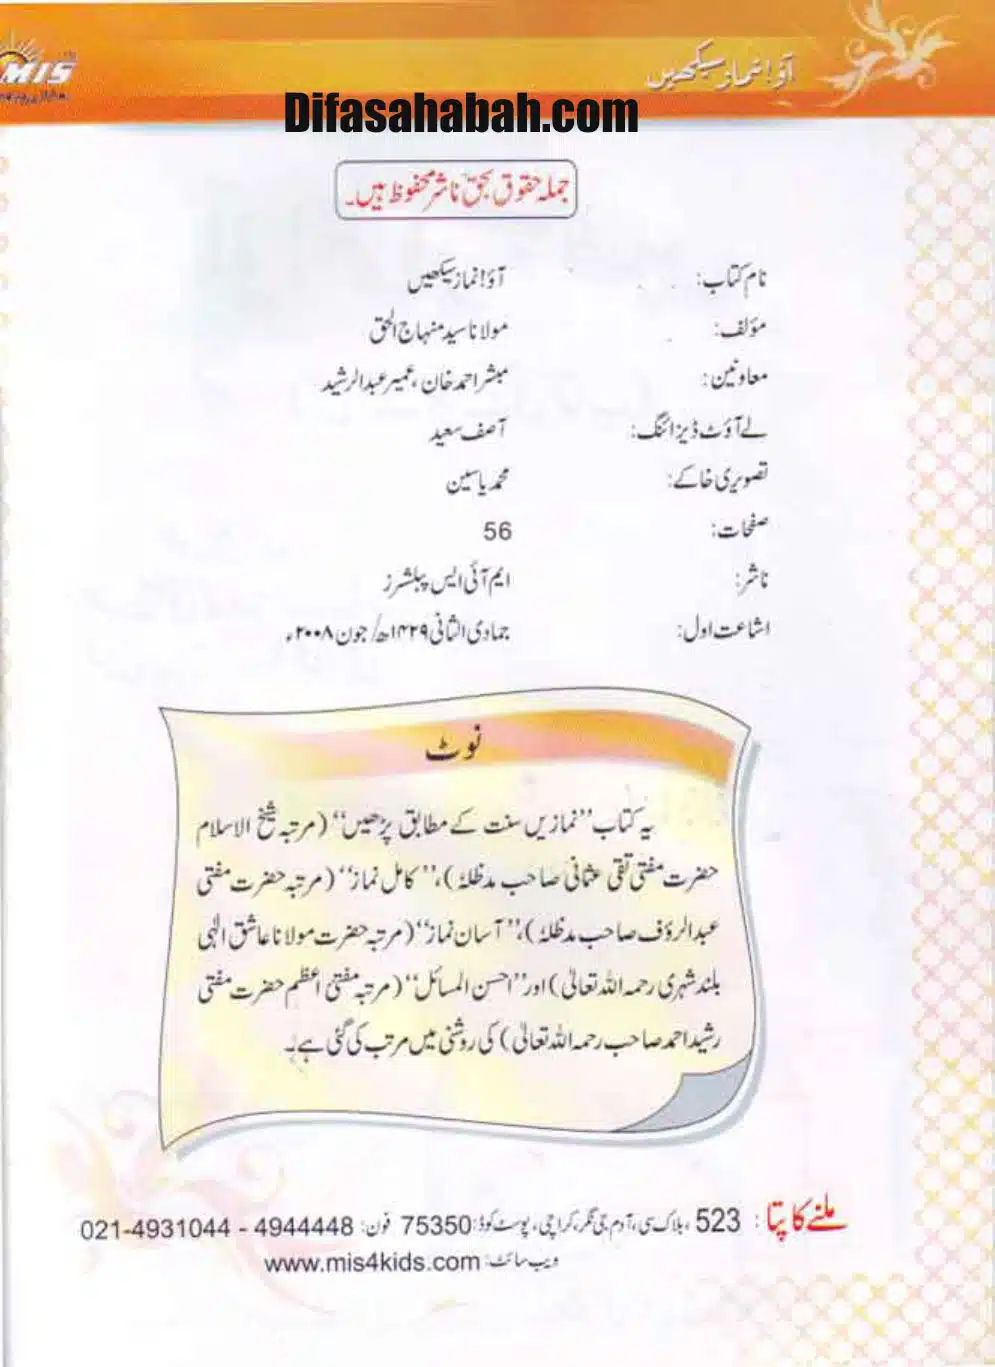 MIS
آؤ! نماز سیکھیں
Difasahabah.com
جملہ حقوق بحق ناشر محفوظ ہیں۔
نام کتاب: آؤ! نماز سیکھیں
مؤلف: مولانا سید منہاج الحق
معاونین: مبشر احمد خان، عمیر عبدالرشید
لے آؤٹ ڈیزائننگ: آصف سعید
تصویری خاکے: محمد یاسین
صفحات: 56
ناشر: ایم آئی ایس پبلشرز
اشاعت اول: جمادی الثانی ۱۴۲۹ھ/ جون ۲۰۰۸ء
نوٹ
یہ کتاب ”نمازیں سنت کے مطابق پڑھیں“ (مرتبہ شیخ الاسلام
حضرت مفتی تقی عثمانی صاحب مدظلہٗ)، ”کامل نماز“ (مرتبہ حضرت مفتی
عبدالرؤف صاحب مدظلہٗ)، ”آسان نماز“ (مرتبہ حضرت مولانا عاشق الٰہی
بلند شہری رحمہ اللہ تعالیٰ) اور ”احسن المسائل“ (مرتبہ مفتیٔ اعظم حضرت مفتی
رشید احمد صاحب رحمہ اللہ تعالیٰ) کی روشنی میں مرتب کی گئی ہے۔
ملنے کا پتا: 523، بلاک سی، آدم جی نگر، کراچی، پوسٹ کوڈ: 75350 فون: 021-4931044 - 4944448
ویب سائٹ: www.mis4kids.com